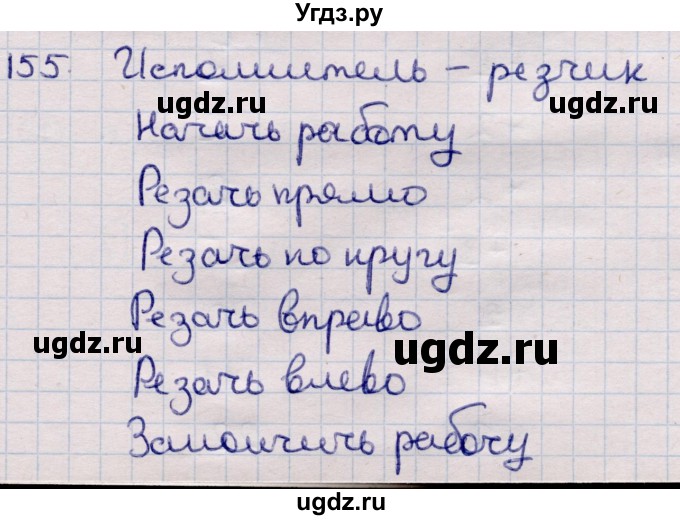 Угдз.ру
155. Исполнитель – резчик
ugdz.ru ugdz.ru
Начать работу
ugdz.ru
Резать прямо
Резать по кругу
ugdz.ru
Резать вправо
ugdz.ru ugdz.ru
Резать влево
Закончить работу
ugdz.ru
ugdz.ru